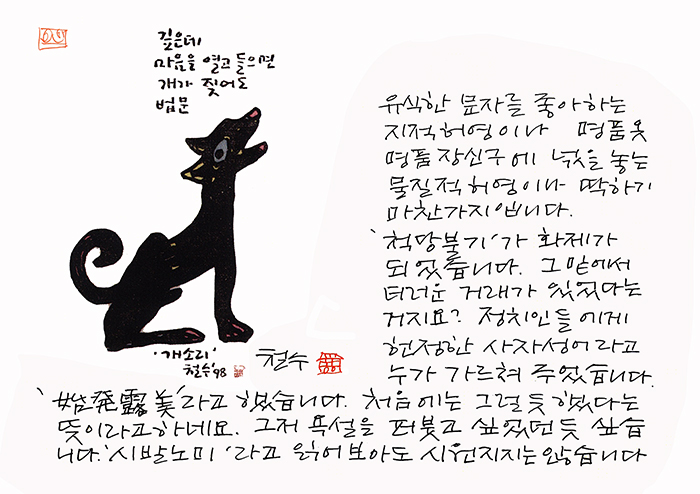 깊은데
마음을 열고 들으면
개가 짖어도
법문
'개소리'
철수'98
철수
유식한 문자를 좋아하는
지적허영이나 명품옷
명품장신구에 넋을 놓는
물질적허영이나 딱하기
마찬가지입니다.
'척당불기'가 화제가
되었습니다. 그밑에서
더러운 거래가 있었다는
거지요? 정치인들에게
헌정한 사자성어라고
누가 가르쳐 주었습니다.
'始発露美'라고 했습니다. 처음에는 그럴듯했다는
뜻이라고하네요. 그저 욕설을 퍼붓고 싶었던듯 싶습
니다. '시발노미'라고 읽어보아도 시원지지는 않습니다